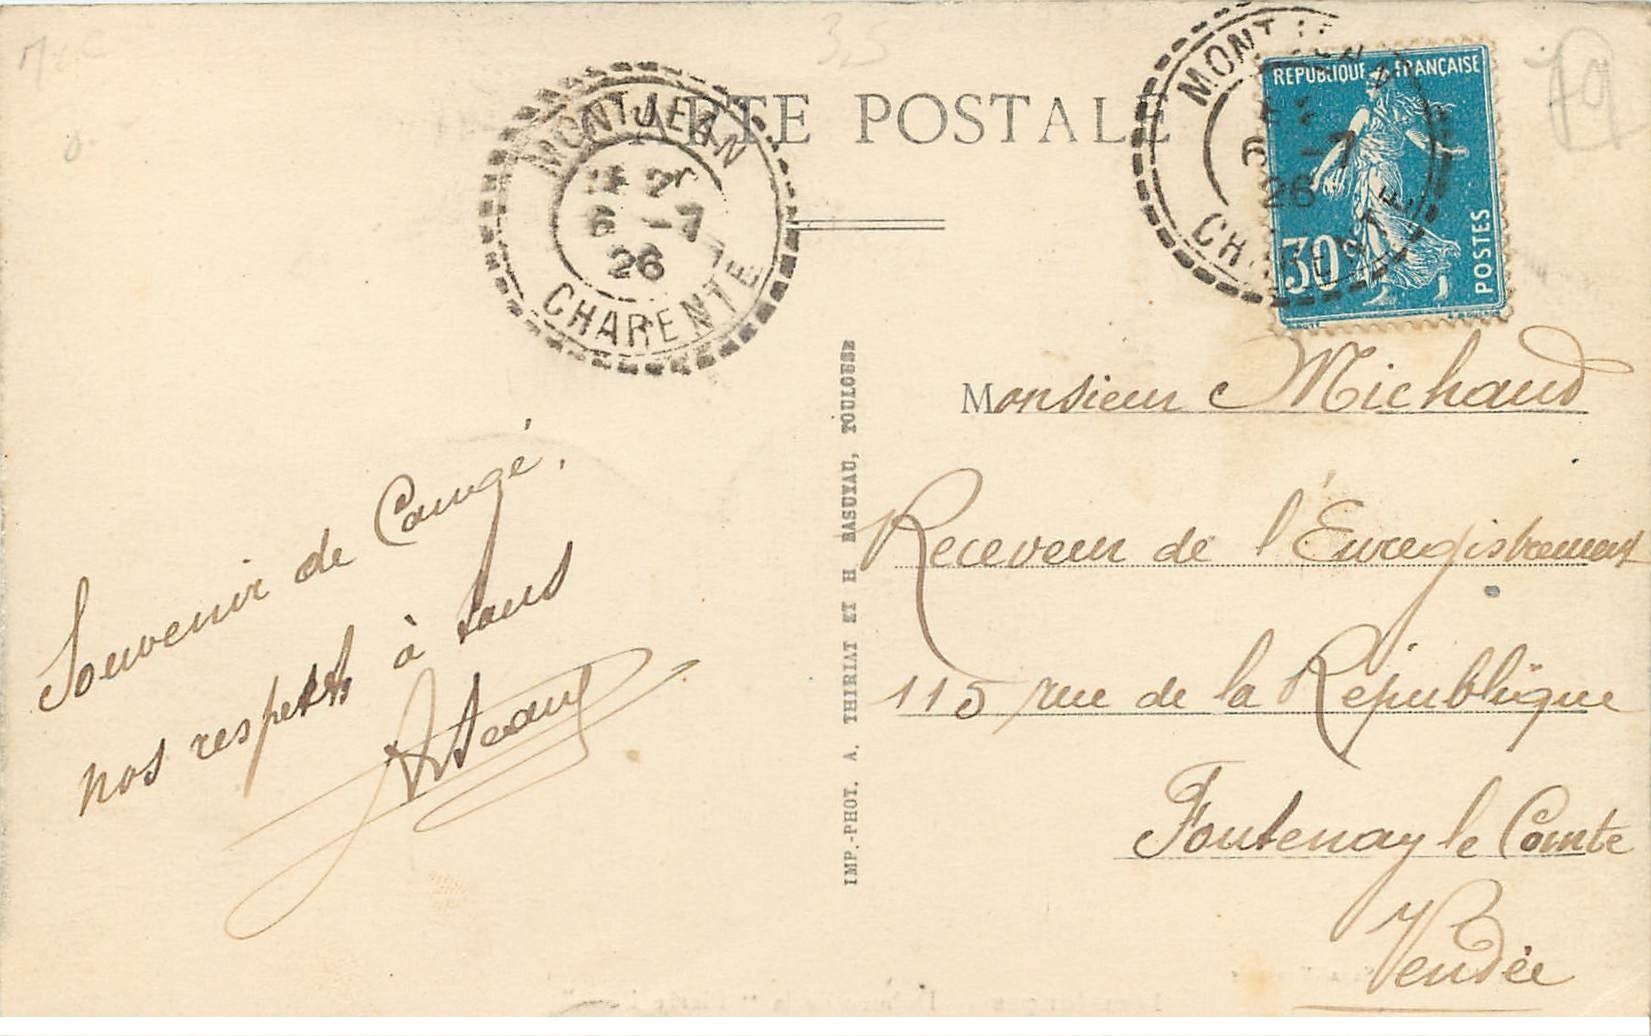 3,5
79
CARTE POSTALE
MONTJEAN
6 -7
26
CHARENTE
MONTJEAN
-7
26
CHARENTE
REPUBLIQUE FRANÇAISE
30
POSTES
Souvenir de Congé.
nos respects à tous
IMP.-PHOT. A. THIRIAT ET H BASUYAU, TOULOUSE
Monsieur Michaud
Receveur de l'Enregistrement
115 rue de la République
Fontenay le Comte
Vendée